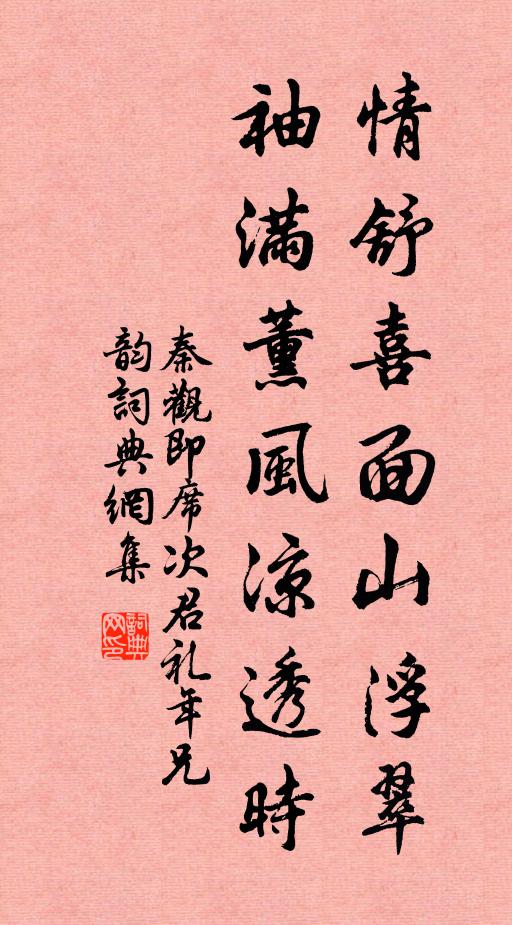 情舒喜面山浮翠
袖滿薰風涼透時
秦觀即席次君礼年兄
韵詞典網集
詞典網印